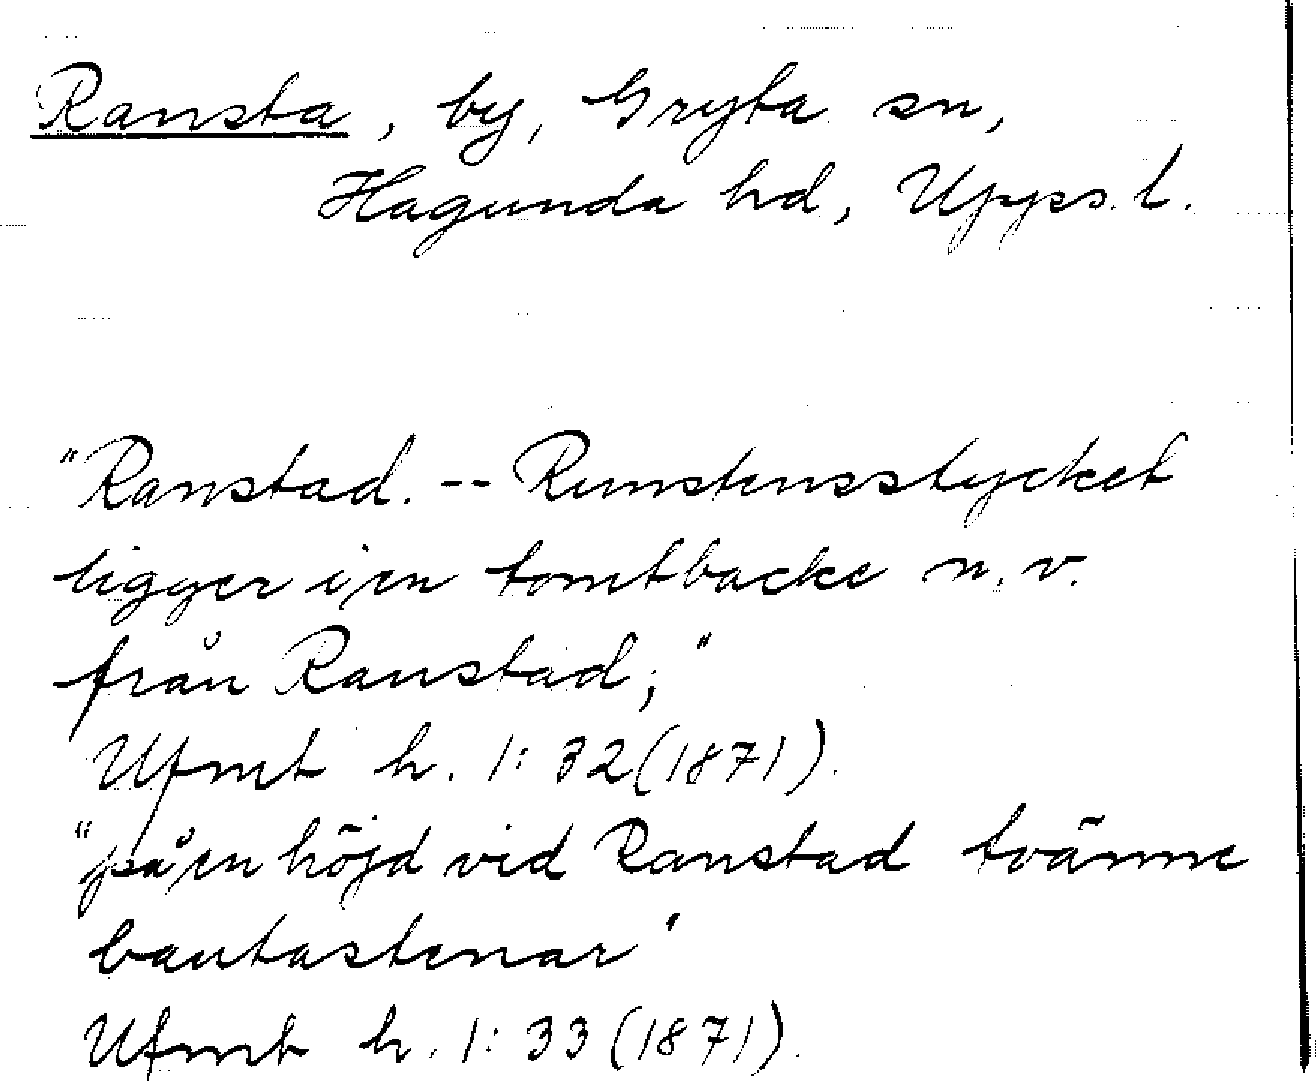 Ransta, by, Gryta sn,
Hagunda hd, Upps. l.
"Ranstad. -- Runstensstycket
ligger i en tomtbacke n.v.
från Ranstad;"
Ufmt h. 1:32 (1871).
"på en höjd vid Ranstad tvänne
bautastenar"
Ufmt h. 1:33 (1871).